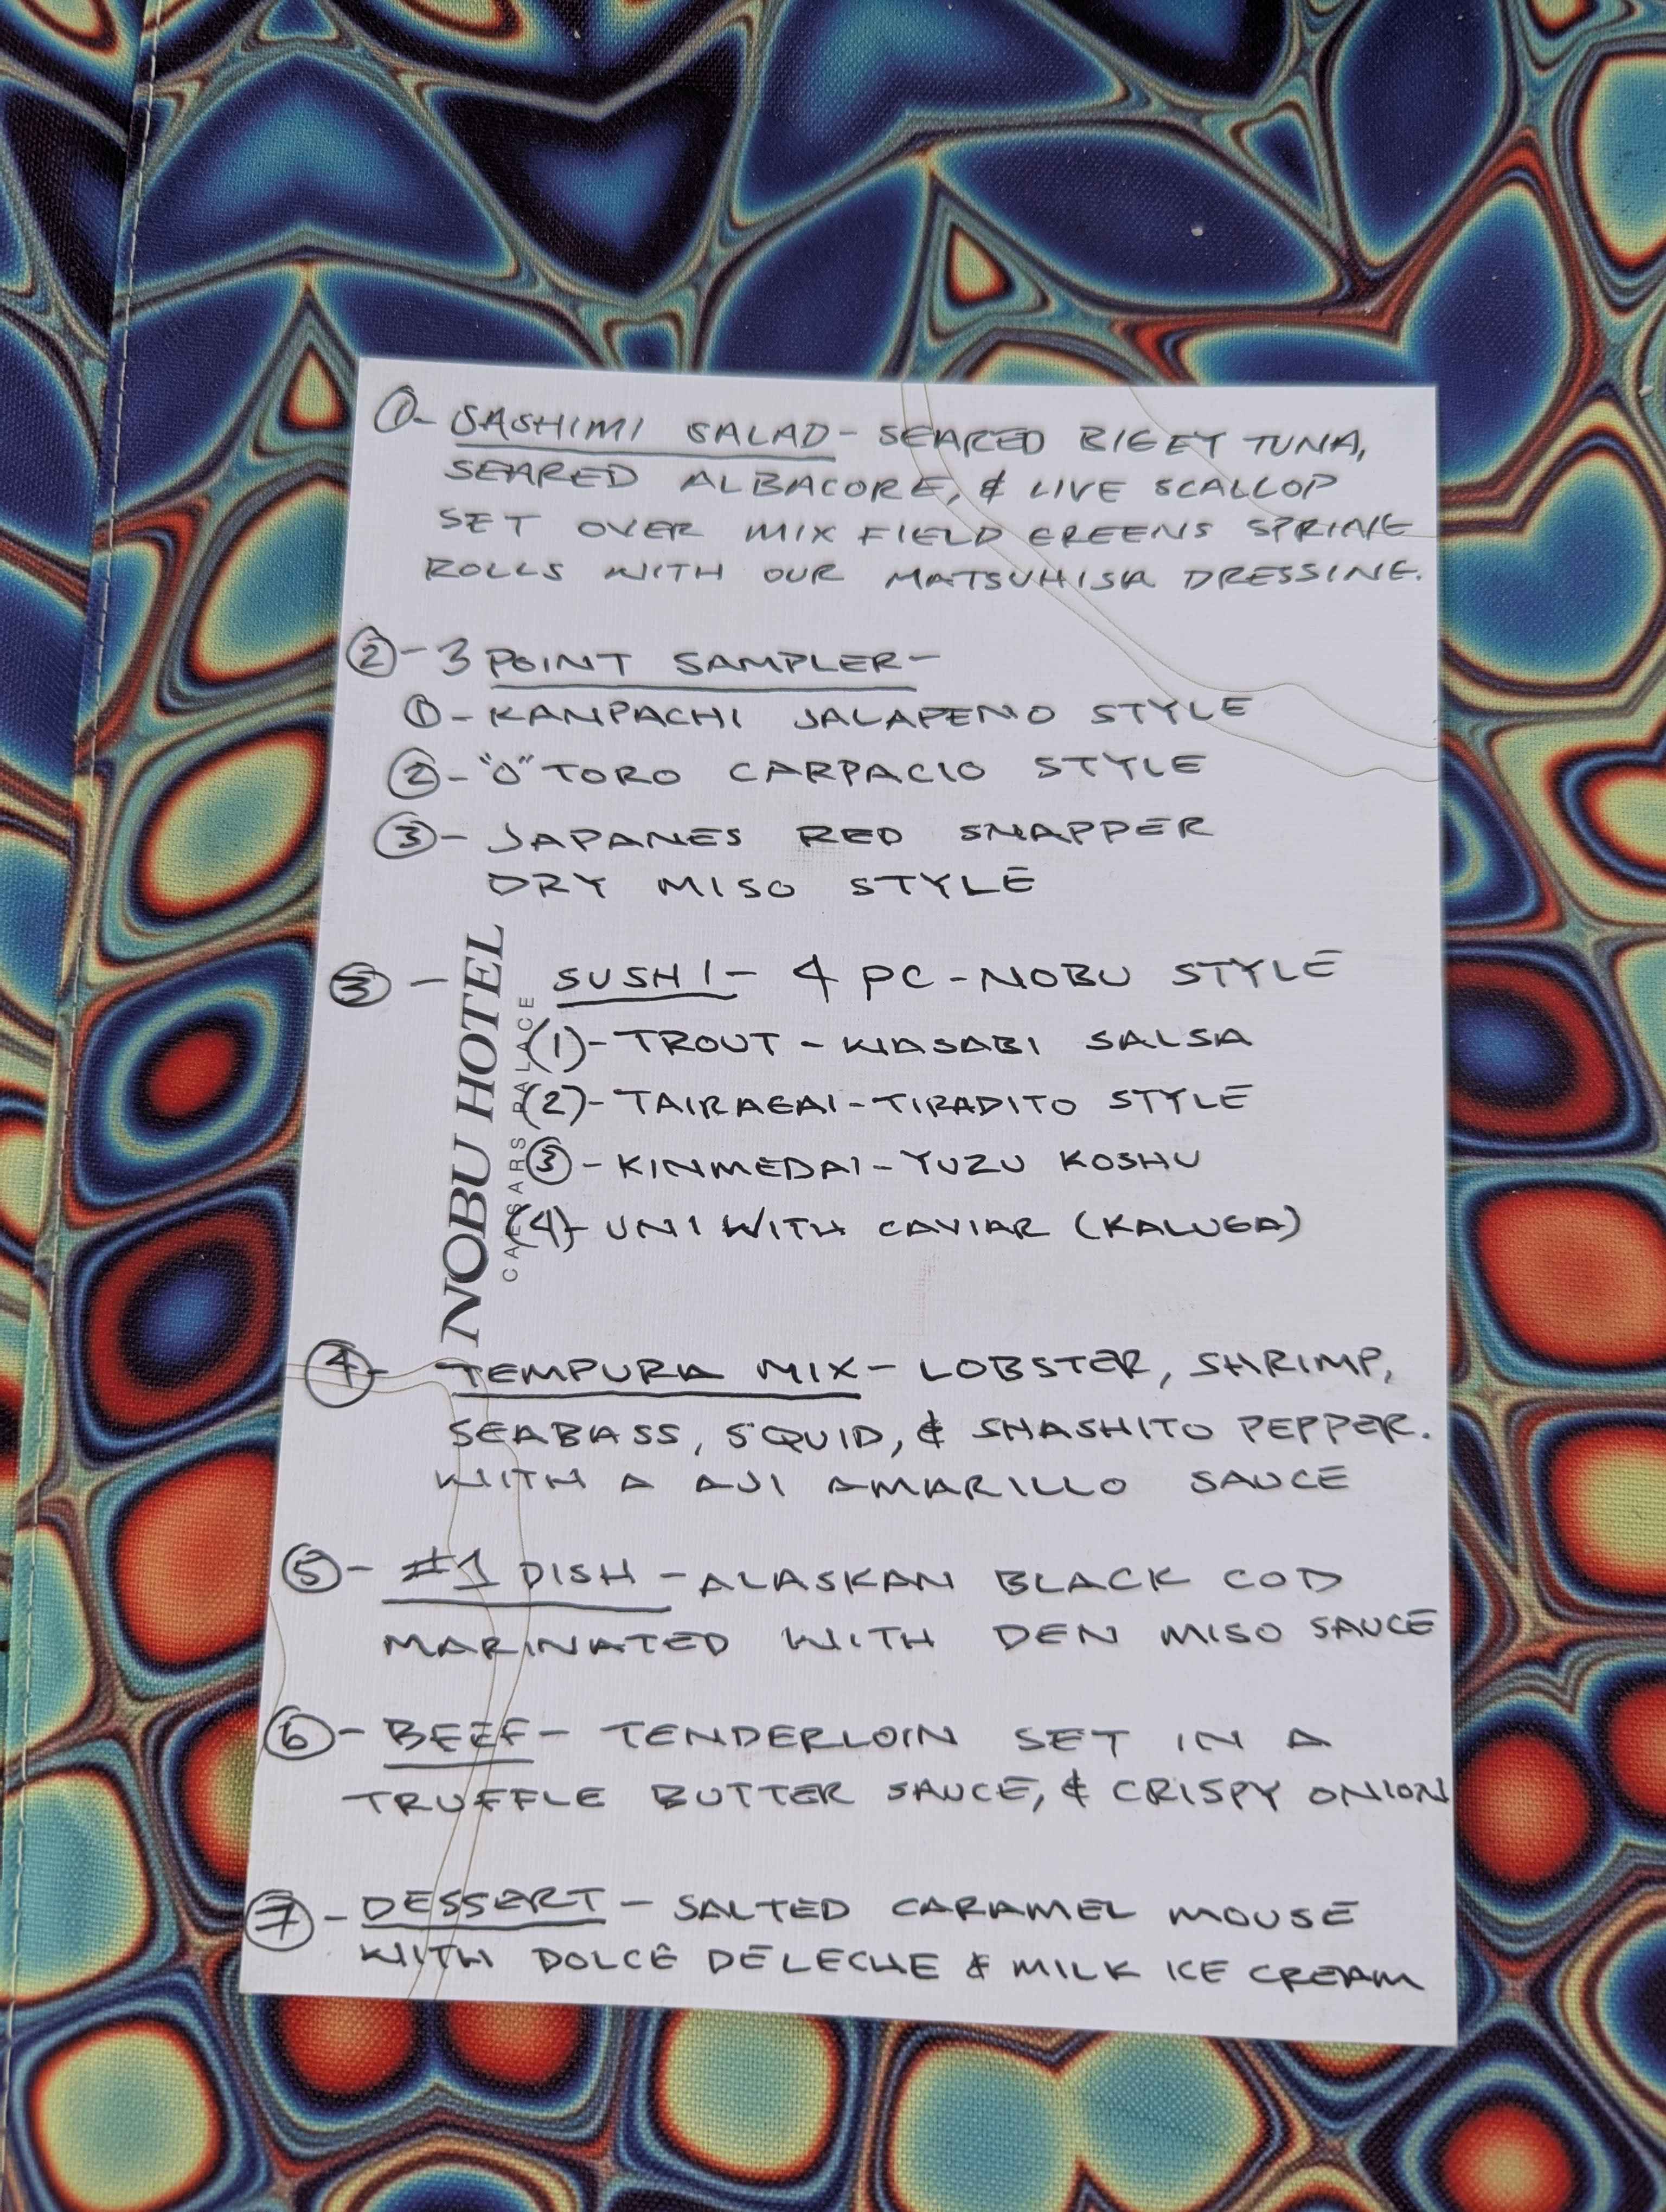 ① - SASHIMI SALAD - SEARED BIGEY TUNA,
SEARED ALBACORE, & LIVE SCALLOP
SET OVER MIX FIELD GREENS SPRING
ROLLS WITH OUR MATSUHISA DRESSING.
② - 3 POINT SAMPLER -
① - KANPACHI JALAPENO STYLE
② - "O" TORO CARPACIO STYLE
③ - JAPANES RED SNAPPER
DRY MISO STYLE
③ - SUSHI - 4 PC - NOBU STYLE
(1) - TROUT - WASABI SALSA
(2) - TAIRAGAI - TIRADITO STYLE
③ - KINMEDAI - YUZU KOSHU
(4) - UNI WITH CAVIAR (KALUGA)
NOBU HOTEL
CAESARS PALACE
④ - TEMPURA MIX - LOBSTER, SHRIMP,
SEABASS, SQUID, & SHASHITO PEPPER.
WITH A AJI AMARILLO SAUCE
⑤ - #1 DISH - ALASKAN BLACK COD
MARINATED WITH DEN MISO SAUCE
⑥ - BEEF - TENDERLOIN SET IN A
TRUFFLE BUTTER SAUCE, & CRISPY ONION
⑦ - DESSERT - SALTED CARAMEL MOUSE
WITH DOLCE DELECHE & MILK ICE CREAM